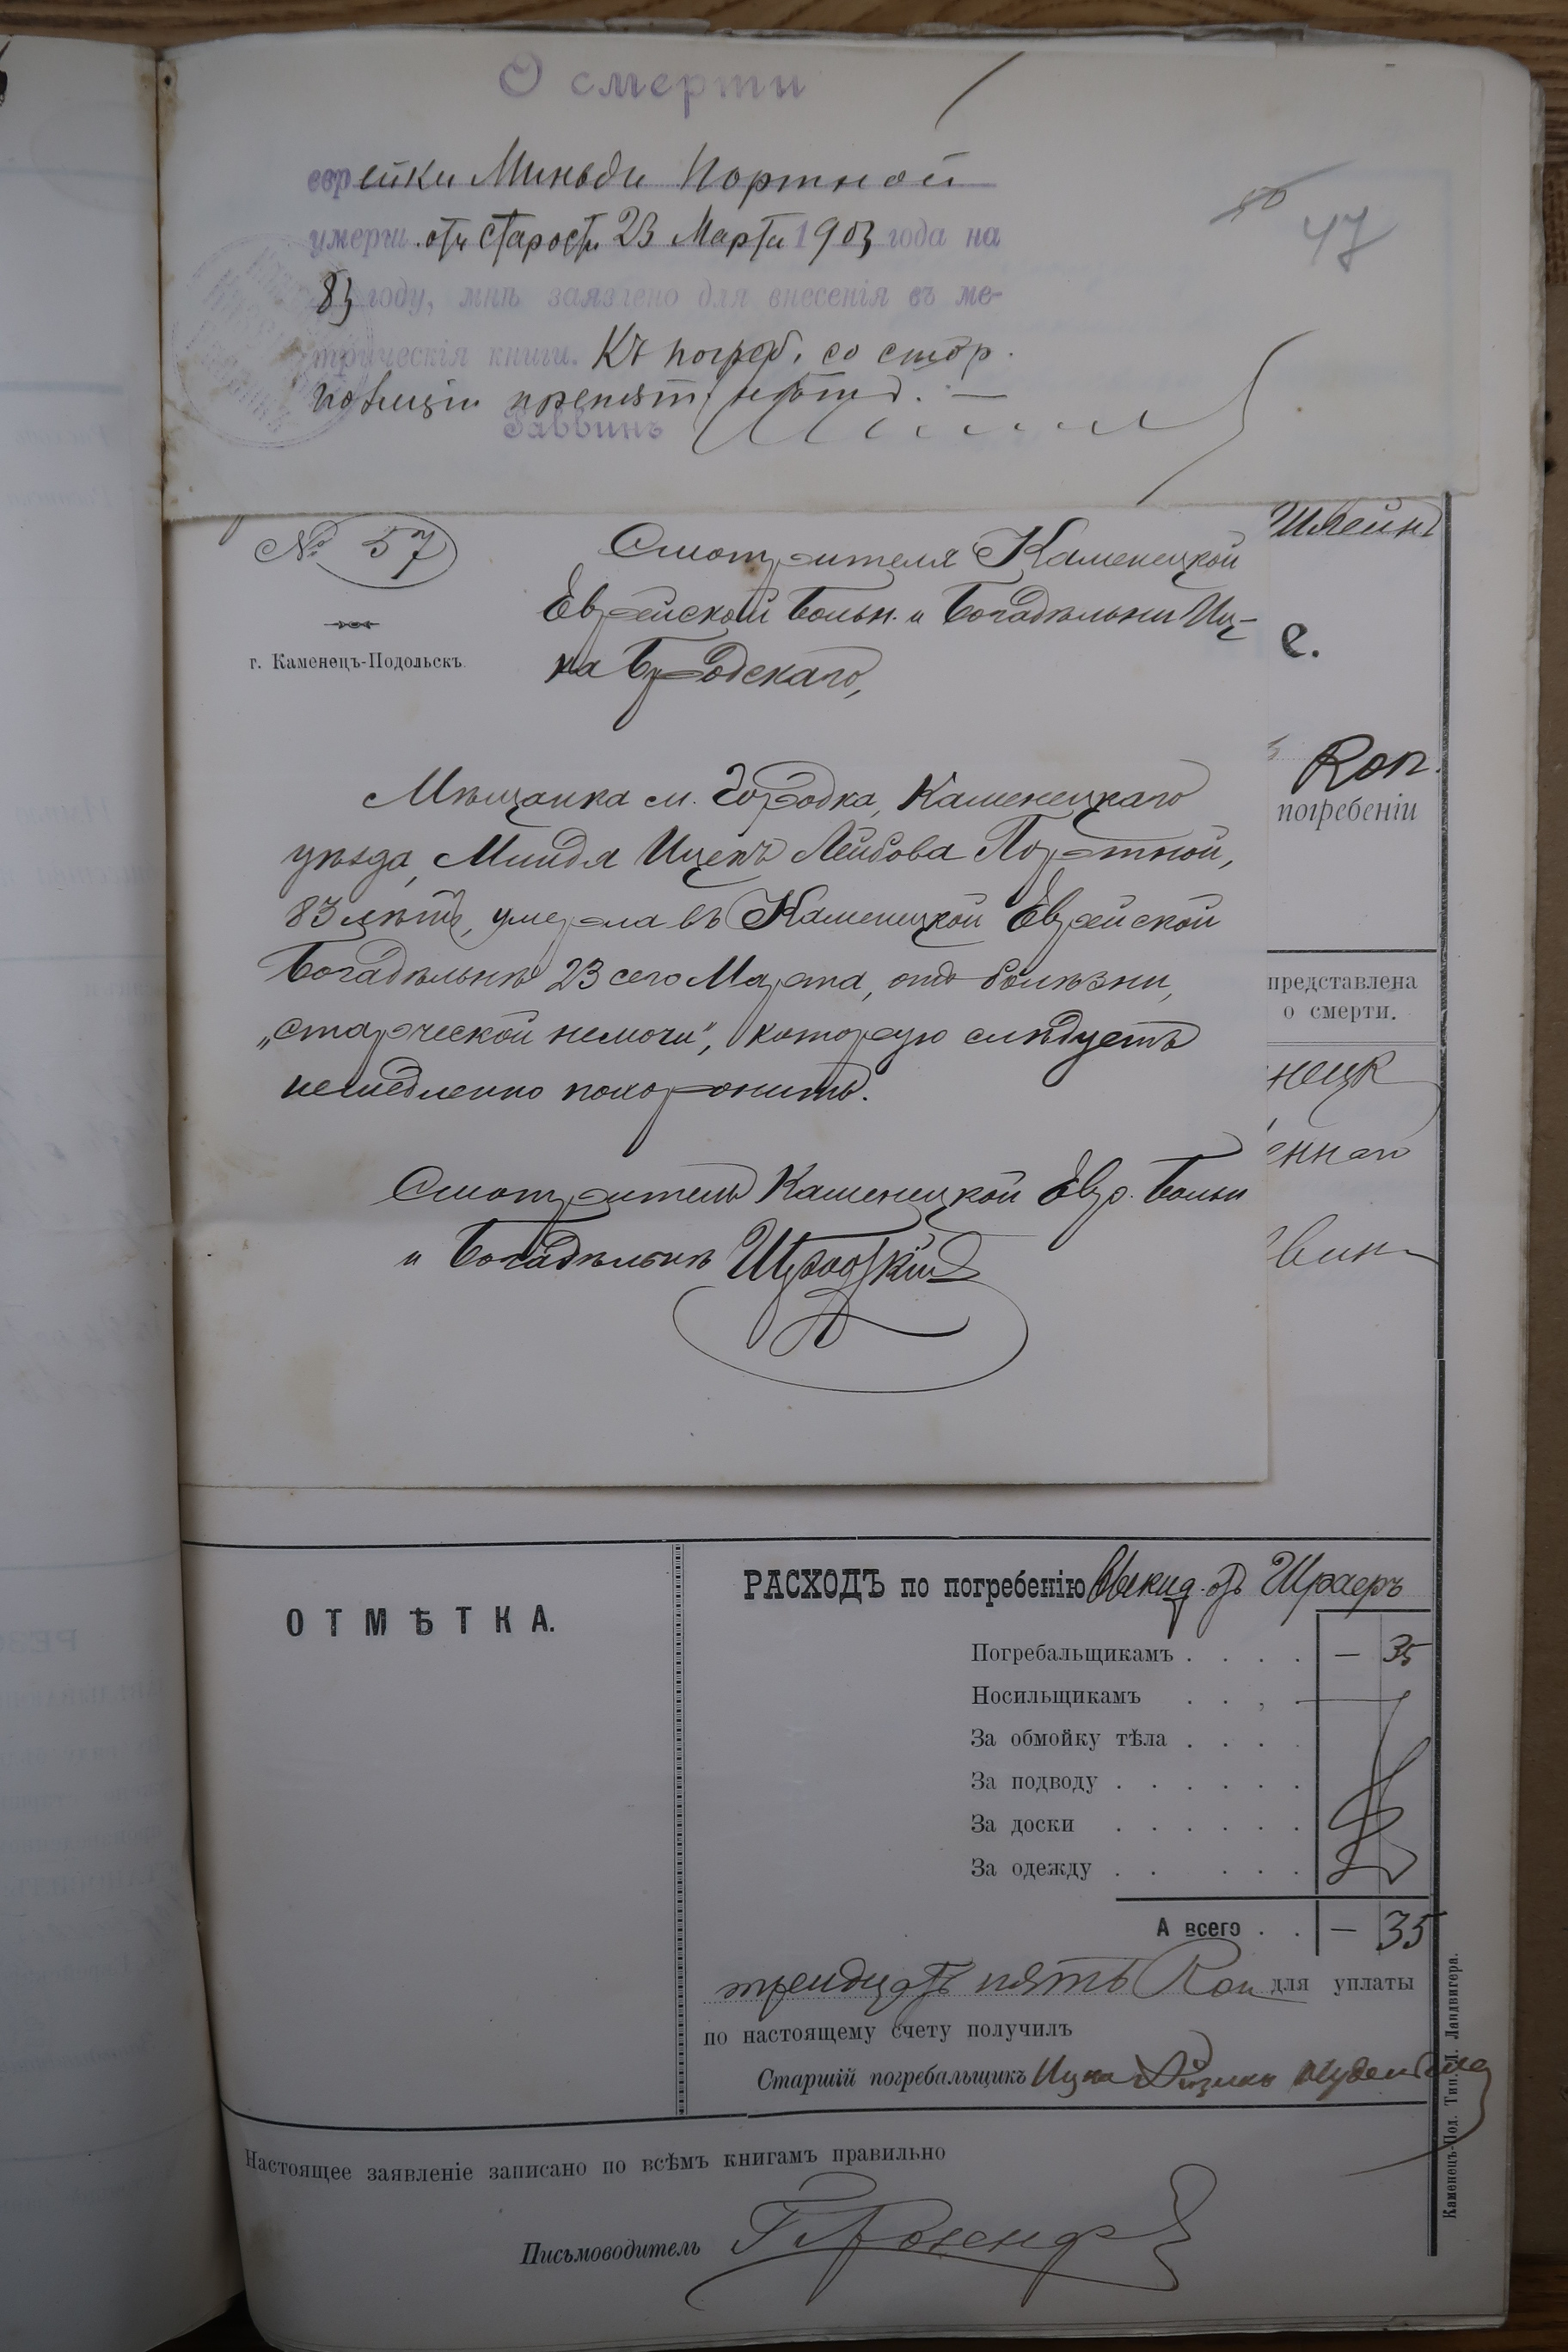 О смерти
еврейки Миньди Портной
умерш. отъ старости 23 Марта 1903 года на
83 году, мнѣ заявлено для внесенія въ ме-
трическія книги. Къ погреб. со стор.
полиціи препят. нѣтъ. —
Раввинъ
50
47
№ 57
г. Каменецъ-Подольскъ.
Смотрителя Каменецкой
Еврейской Больн. и Богадѣльни Иц-
ка Бродскаго,
Мѣщанка м. Городка, Каменецкаго
уѣзда, Миндя Ицекъ Лейбова Портной,
83 лѣтъ, умерла въ Каменецкой Еврейской
Богадѣльнѣ 23 сего Марта, отъ болѣзни,
„старческой немочи", которую слѣдуетъ
немедленно похоронить.
Смотритель Каменецкой Евр. Больн
и Богадѣльнѣ
е.
Коп.
погребеніи
представлена
о смерти.
нецк
еннаго
ОТМѢТКА.
РАСХОДЪ по погребенію выкид. отъ Шраеръ
Погребальщикамъ . . . . — 35
Носильщикамъ . . .
За обмойку тѣла . . . .
За подводу . . . . . .
За доски . . . . . .
За одежду . . . . .
А всего . . — 35
тридцать пять Коп для уплаты
по настоящему счету получилъ
Старшій погребальщикъ Ицко
Настоящее заявленіе записано по всѣмъ книгамъ правильно
Письмоводитель
Каменецъ-Под. Тип. Л. Ландвигера.